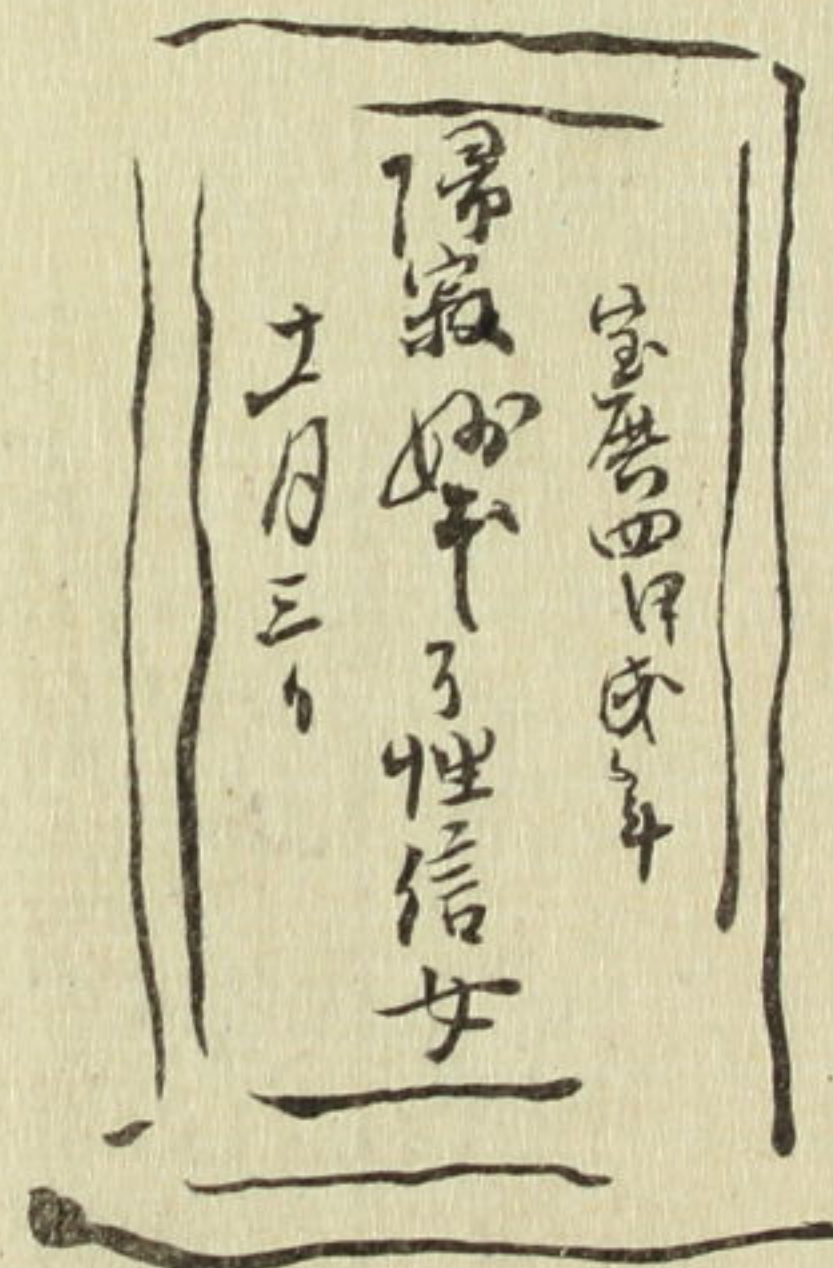 宝暦四甲戌年
帰寂妙了性信女
十一月三日